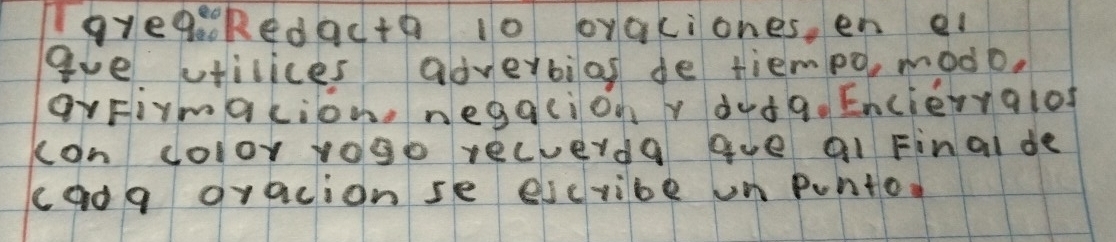 Tarea: Redacta 10 oraciones, en el
que utilices adverbios de tiempo, modo,
arfirmación, negación y duda. Enciérralos
con color rogo recuerda que al Final de
cada oracion se escribe un punto.